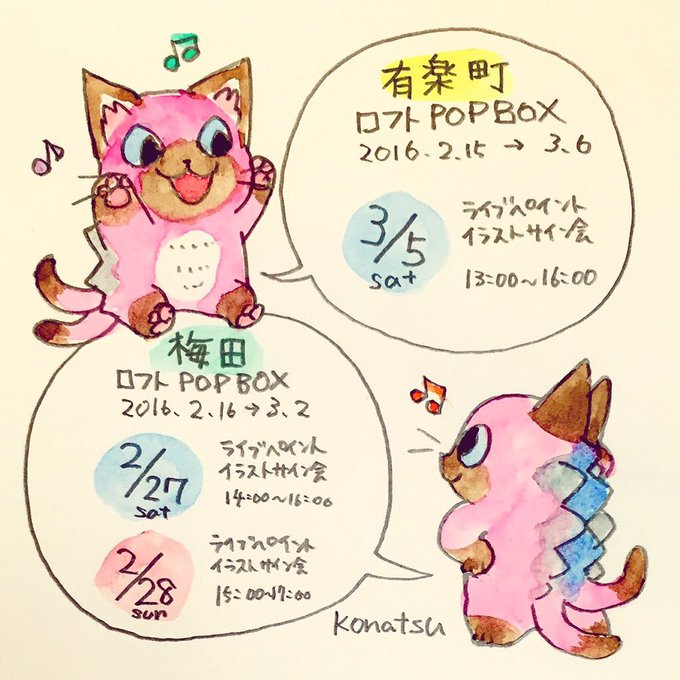 有楽町
ロフトPOPBOX
2016.2.15 → 3.6
3/5
sat
ライブペイント
イラストサイン会
13:00〜16:00
梅田
ロフトPOPBOX
2016.2.16→3.2
2/27
sat
ライブペイント
イラストサイン会
14:00〜16:00
2/28
sun
ライブペイント
イラストサイン会
15:00〜17:00
konatsu